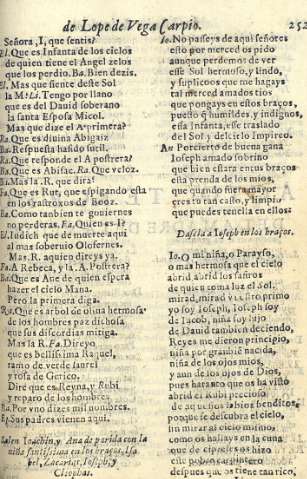 de Lope de Vega Carpio. 252
Señora, I, que sentis?
El. Que es Infanta de los cielos
de quien tiene el Angel zelos
que los perdio. Ba. Bien dezis.
El. Mas que siente deste Sol
la M? Li. Tengo por llano
que es del Dauid soberano
la santa Esposa Micol.
Mas que dize el A primera?
Ra. Que es diuina Abigaiz
Ba. Respuesta ha sido sutil.
Ra. Que responde el A postrera?
Ba. Que es Abisac. Ra. Que veloz.
Ba. Mas la R. que dirà?
Ba. Que es Rut, que espigando està
en los rastrojos de Booz.
Ba. Como tambien te gouiernes
no perderas. Fa. Quien es I?
El. Iudich que de muerte aqui
al mas soberuio Olofernes.
Mas. R. aquien direys ya.
Fa. A Rebeca, y la. A. Postrera?
Ba. Que es Ana de quien espera
hazer el cielo Mana.
Pero la primera diga.
Ra. Que es arbol de oliua hermosa
de los hombres paz dichosa
que sus discordias mitiga.
Mas la R. Fa. Direyo
que es bellissima Raquel,
ramo de verde laurel
y rosa de Gerico.
Diré que es Reyna, y Rubi
y reparo de los hombres
Ba. Por vno dizes mil nombres.
Ep. Sus padres vienen aqui.
Salen Ioachin, y Ana de parida con la
niña santissima en los braços, Isa
bel, Zacarias, Ioseph, y
Cleophas.
Io. No passeys de aqui señores
esto por merced os pido
aunque perdemos de ver
esse Sol hermoso, y lindo,
y suplicoos que me hagays
tal merced amados tios
que pongays en estos braços,
puesto q̃ humildes, y indignos,
essa Infanta, esse traslado
del Sol, y del cielo Impireo.
An Por cierto de buena gana
Ioseph amado sobrino
que bien estarà en tus braços
esta prenda de los mios,
que quando fuera mayor
eres tu tan casto, y limpio
que puedes tenella en ellos:
Dasela a Ioseph en los braços.
Io. O mi niña, o Parayso,
o mas hermosa que el cielo
abrid abrid los safiros
de quien toma luz el Sol.
mirad, mirad vuestro primo
yo soy Ioseph, Ioseph soy
de Iacob, niña soy hijo
de Dauid tambien deciendo,
Reyes me dieron principio,
niña por gran bié nacida,
niña de los ojos mios,
y aun de los ojos de Dios,
pues ha tanto que os ha visto
abrid el Rubi precioso
de aquestos labios benditos,
porque se descubra el cielo,
sin mirar al cielo mismo,
como os hallays en la cuna
que de cipreses os hizo
este pobre carpintero
despues que os tiene tan rico,